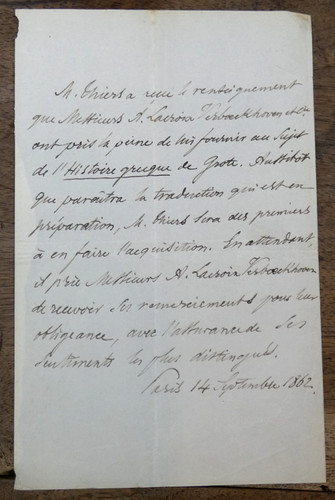 M. Thiers a reçu le renseignement
que Messieurs A. Lacroix Verboeckhoven et Cie
ont pris la peine de lui fournir au sujet
de l'Histoire grecque de Grote. Aussitôt
que paraîtra la traduction qui est en
préparation, M. Thiers sera des premiers
à en faire l'acquisition. En attendant,
il prie Messieurs A. Lacroix Verboeckhoven
de recevoir ses remerciements pour leur
obligeance, avec l'assurance de ses
sentiments les plus distingués.
Paris 14 Septembre 1862.